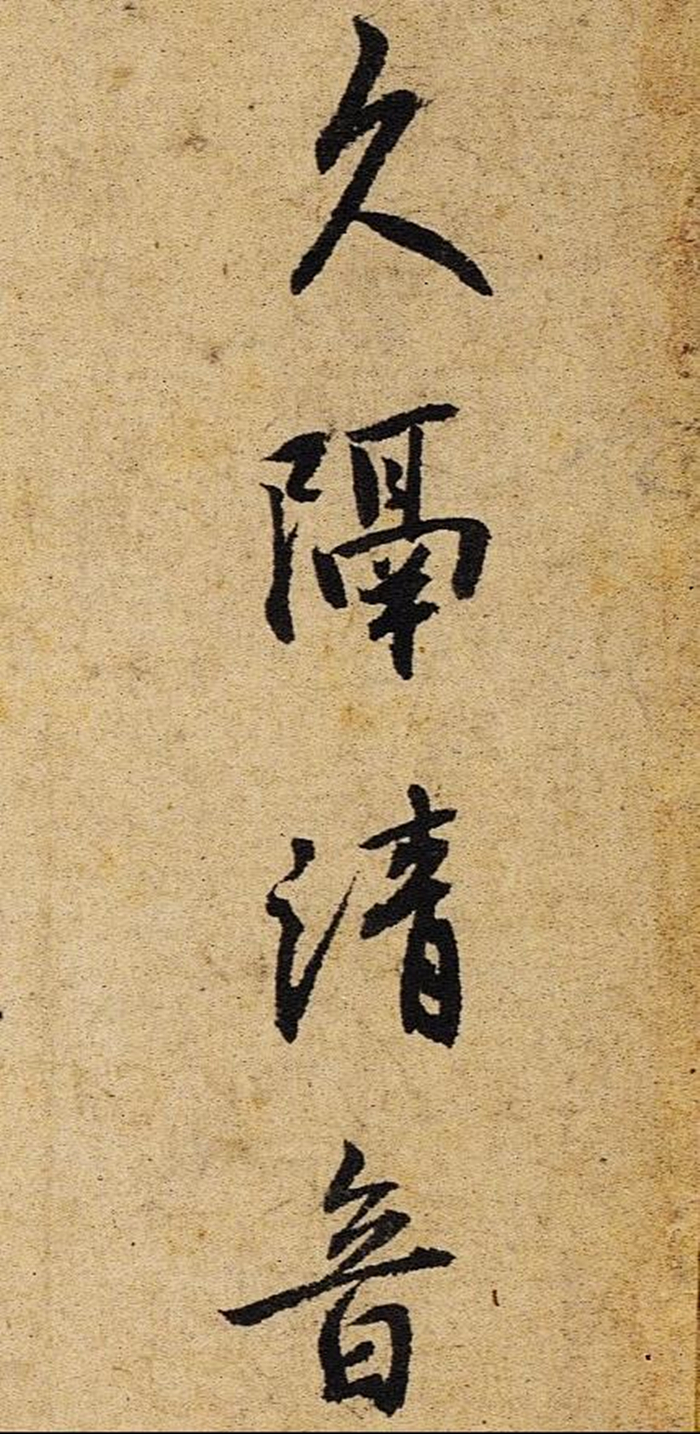 久隔清音